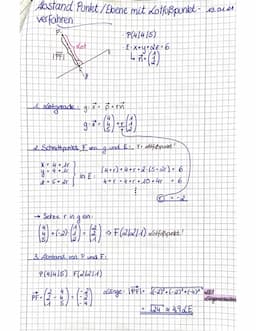 Abstand Punkt/Ebene mit Lotfußpunkt-
verfahren
P(4|4|5)
E: x+y+2z=6
Lot
1. Lotgerade: g: x = p + r·n
g: x = (4 4 5) + r·(1 1 2)
2. Schnittpunkt F von g und E:
x = 4+1r
y = 4+1r
z = 5+2r
in E:
(4+r)+4+r+2·(5+2r) = 6
4+r+4+r+10+4r = 6
r = -2
→ Setze r in g ein:
(4 4 5) + (-2)·(1 1 2) = (2 2 1) → F(2|2|1) Lotfußpunkt!
3. Abstand von P und F:
P(4|4|5) F(2|2|1)
PF = (2 2 1) - (4 4 5) = (-2 -2 -4)
Länge: |PF| = √(-2)²+(-2)²+(-4)²
= √24 ≈ 4,9 LE